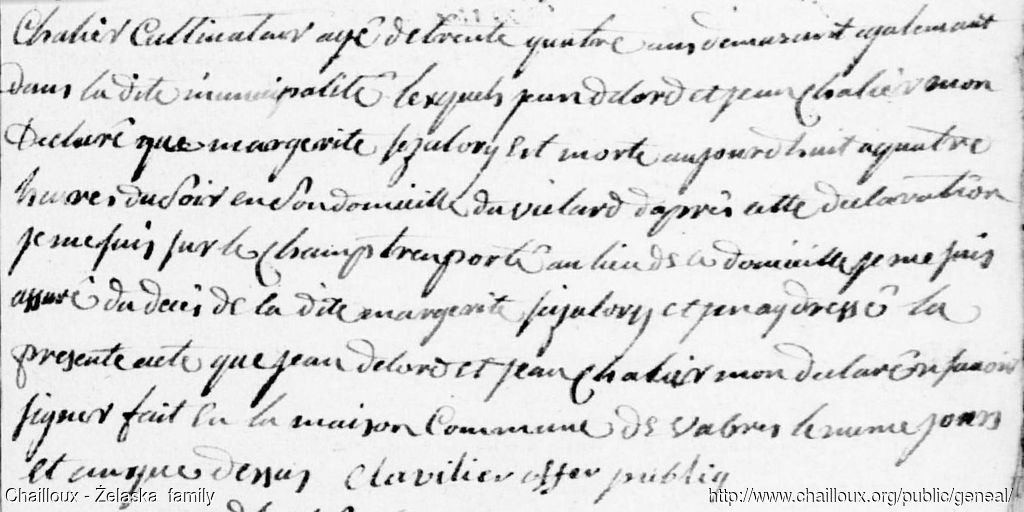 Chalier Cultinateur ayé de trente quatre ans demeurant egalemant
dans la dite municipalité lesquels jean delord et jean Chalier mon
Declaré que margerite sejalory Est morte aujourdhuit a quatre
heures du soir en son domicille du vielard daprès cette declaration
je me suis sur le Champ tranporté au lieu de ce domicille je me suis
assuré du decés de la dite margerite sejalory et jen ay dressé la
presente acte que jean delord et jean Chalier mon declaré ne savoir
signer fait En la maison Commune de Vabres le meme jours
et an que dessus Clavilier offer public
Chailloux - Żelaska family
http://www.chailloux.org/public/geneal/